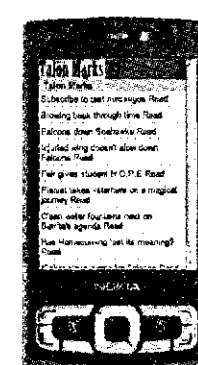 Talon Marks
Talon Marks
Subscribe to text messages Read
Browing back through time Read
Falcons down Seahawks Read
Injured wing doesn't slow down
Falcons Read
Fair gives student H.O.P.E Read
Pianist takes listeners on a magical
journey Read
Clean water fountains need on
agenda Read
Has Homecoming lost its meaning?
Read
NOKIA